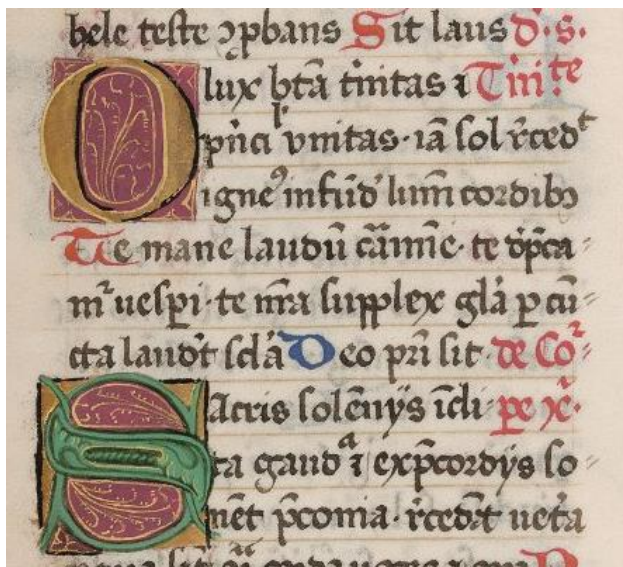 hele teste ꝯpbans Sit laus d̄. s.
O lux bt̄a t̄nitas ⁊ T̄rī.te
p̄nciꝉ vnitas · iā sol r̄cedᵗ
igneꝰ infūd̕ lum̄ cordibꝫ
Te mane laudū cāmīe · te dp̄ca〃
m᷑ uesꝑi · te nr̄a supplex gl̄a ꝑ cū〃
cta laud᷑t scl̄a Deo pr̄i sit · de Co᷑〃
Sacris solēnijs īcti · pe xp̄.
ta gaudᵃ ⁊ exp̄cordijs so〃
nēt p̄conia · r̄cedāt uet̄a